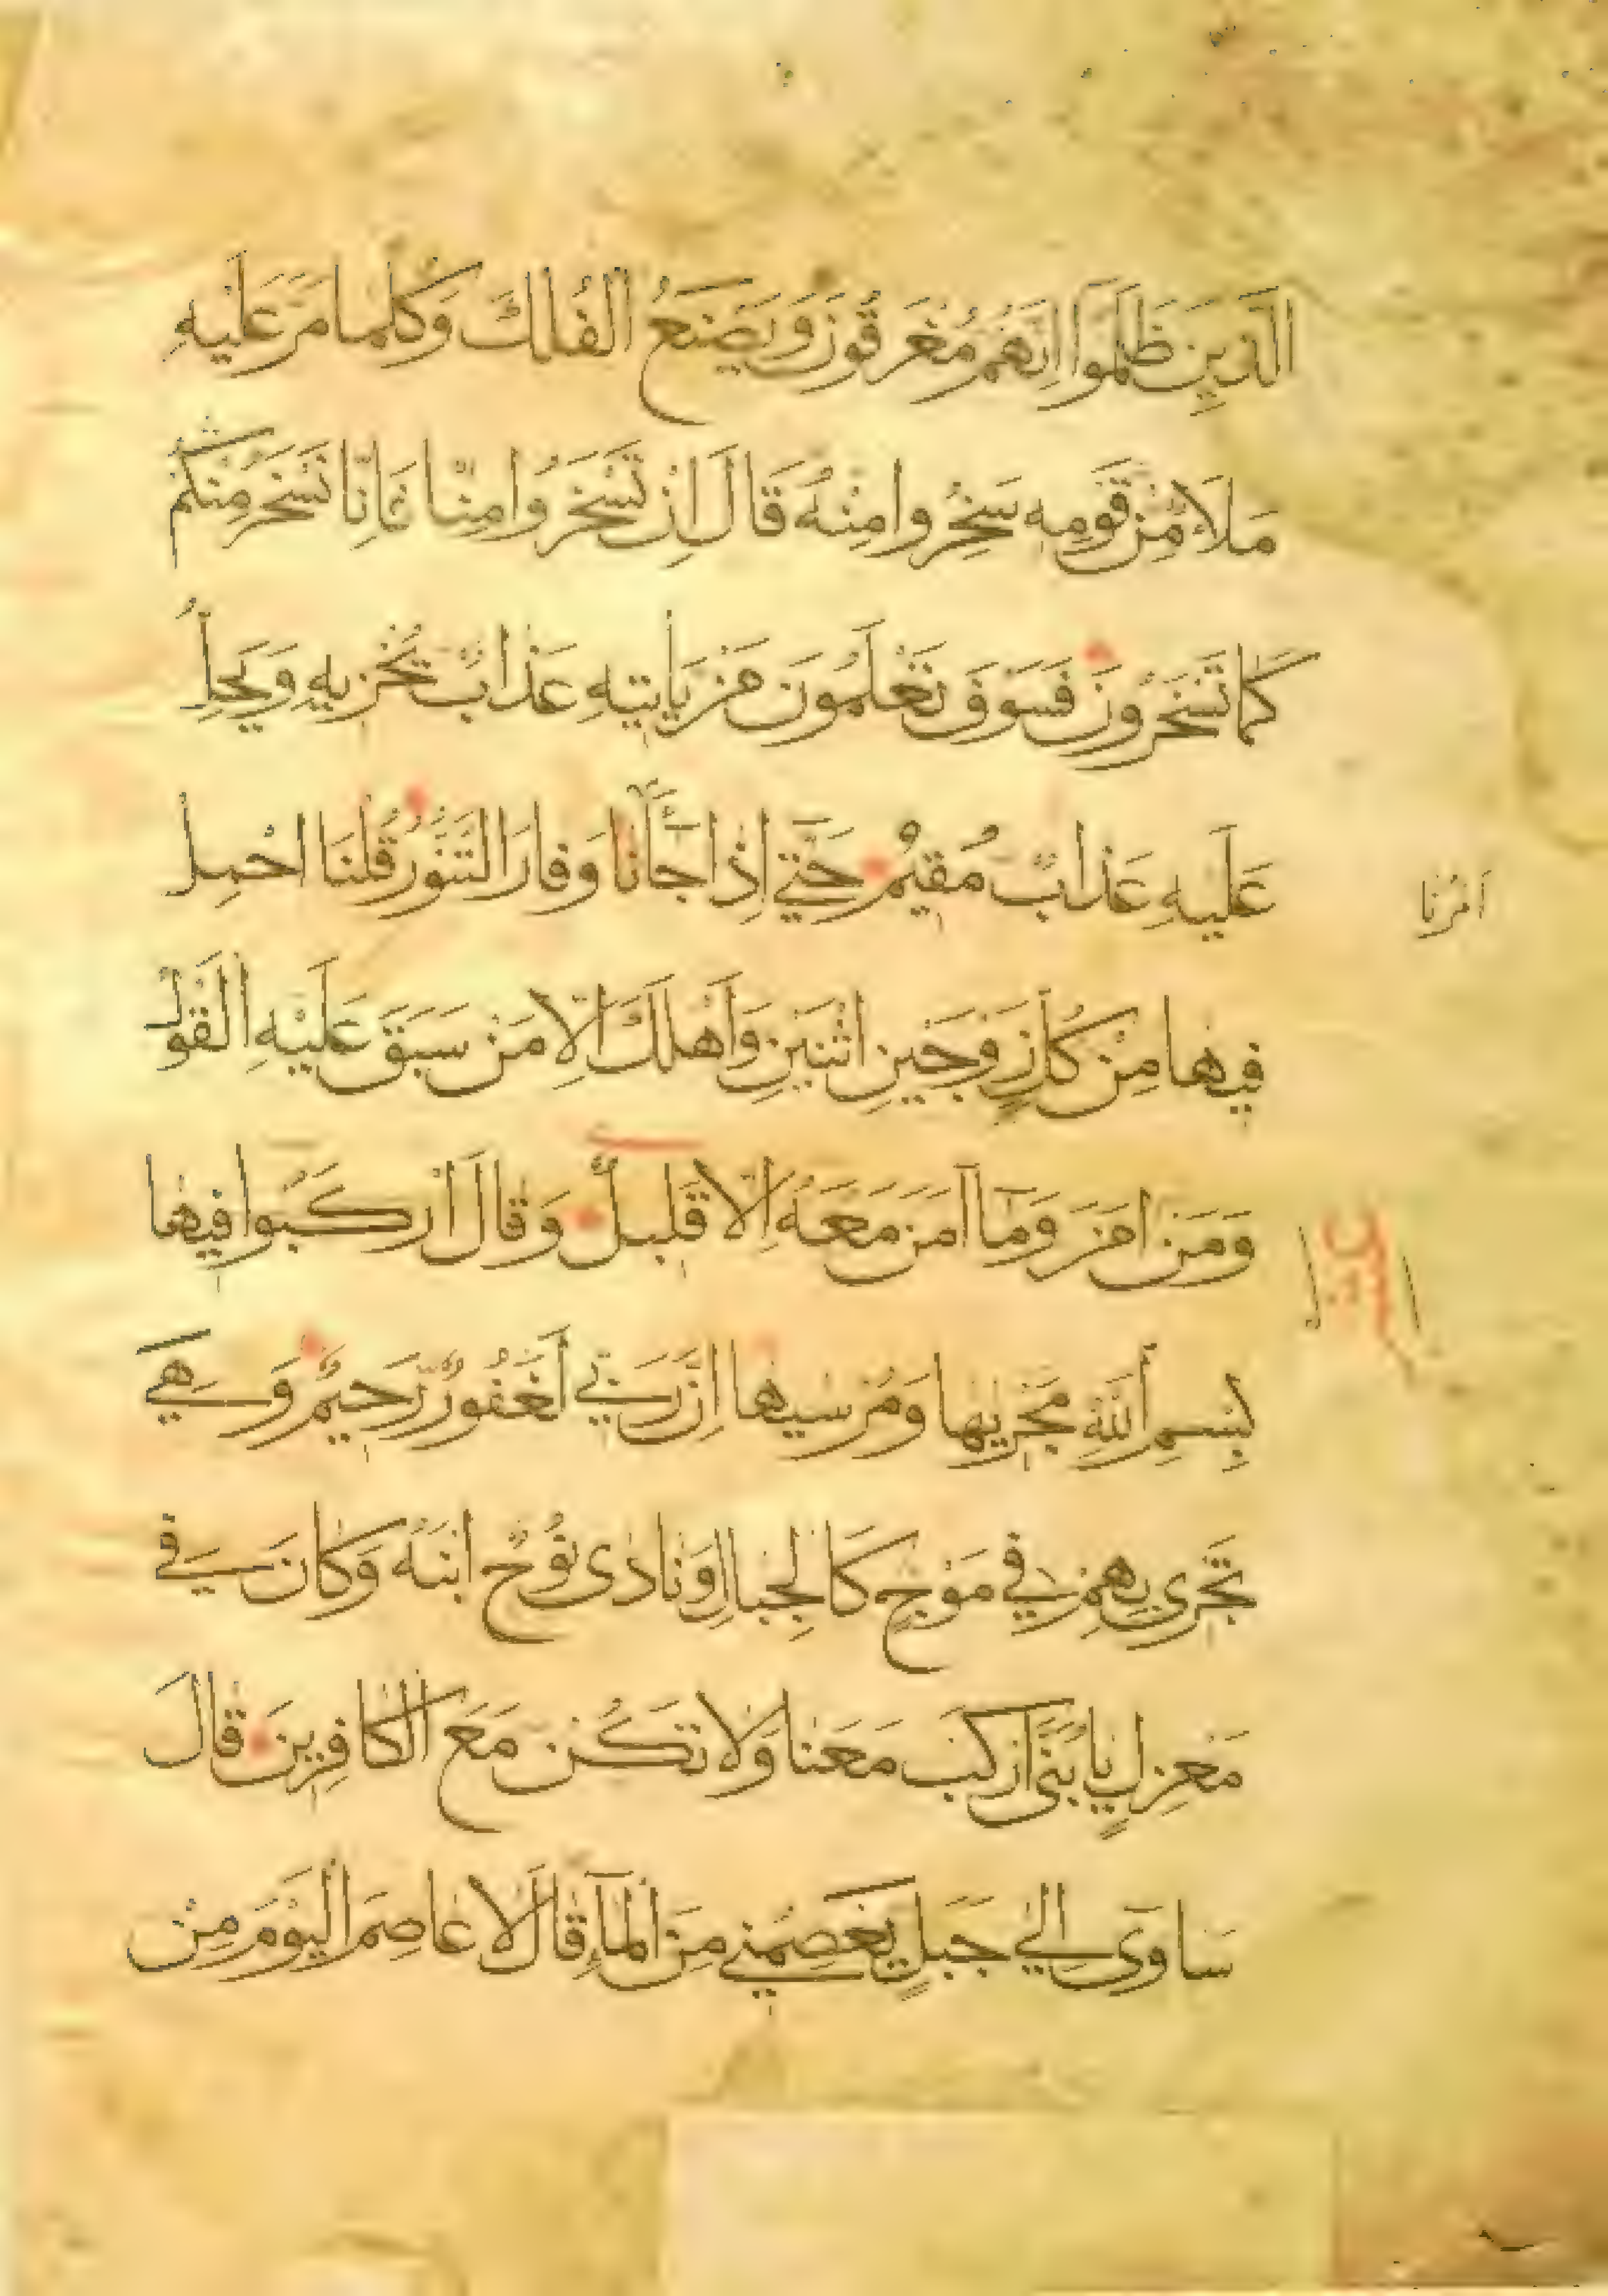 الَّذِينَ ظَلَمُوا اِنَّهُمْ مُغْرَقُونَ وَيَصْنَعُ الْفُلْكَ وَكُلَّمَا مَرَّ عَلَيْهِ
مَلَأٌ مِنْ قَوْمِهِ سَخِرُوا مِنْهُ قَالَ اِنْ تَسْخَرُوا مِنَّا فَاِنَّا نَسْخَرُ مِنْكُمْ
كَمَا تَسْخَرُونَ فَسَوْفَ تَعْلَمُونَ مَنْ يَأْتِيهِ عَذَابٌ يُخْزِيهِ وَيَحِلُّ
عَلَيْهِ عَذَابٌ مُقِيمٌ حَتَّى اِذَا جَآءَنَا وَفَارَ التَّنُّورُ قُلْنَا احْمِلْ
اَمْرُنَا
فِيهَا مِنْ كُلٍّ زَوْجَيْنِ اثْنَيْنِ وَاَهْلَكَ اِلَّا مَنْ سَبَقَ عَلَيْهِ الْقَوْلُ
وَمَنْ اٰمَنَ وَمَآ اٰمَنَ مَعَهُ اِلَّا قَلِيلٌ وَقَالَ ارْكَبُوا فِيهَا
بِسْمِ اللّٰهِ مَجْرٰيهَا وَمُرْسٰيهَا اِنَّ رَبِّي لَغَفُورٌ رَحِيمٌ وَهِيَ
تَجْرِي بِهِمْ فِي مَوْجٍ كَالْجِبَالِ وَنَادٰى نُوحٌ ابْنَهُ وَكَانَ فِي
مَعْزِلٍ يَا بُنَيَّ ارْكَبْ مَعَنَا وَلَا تَكُنْ مَعَ الْكَافِرِينَ قَالَ
سَاٰوِي اِلٰى جَبَلٍ يَعْصِمُنِي مِنَ الْمَآءِ قَالَ لَا عَاصِمَ الْيَوْمَ مِنْ